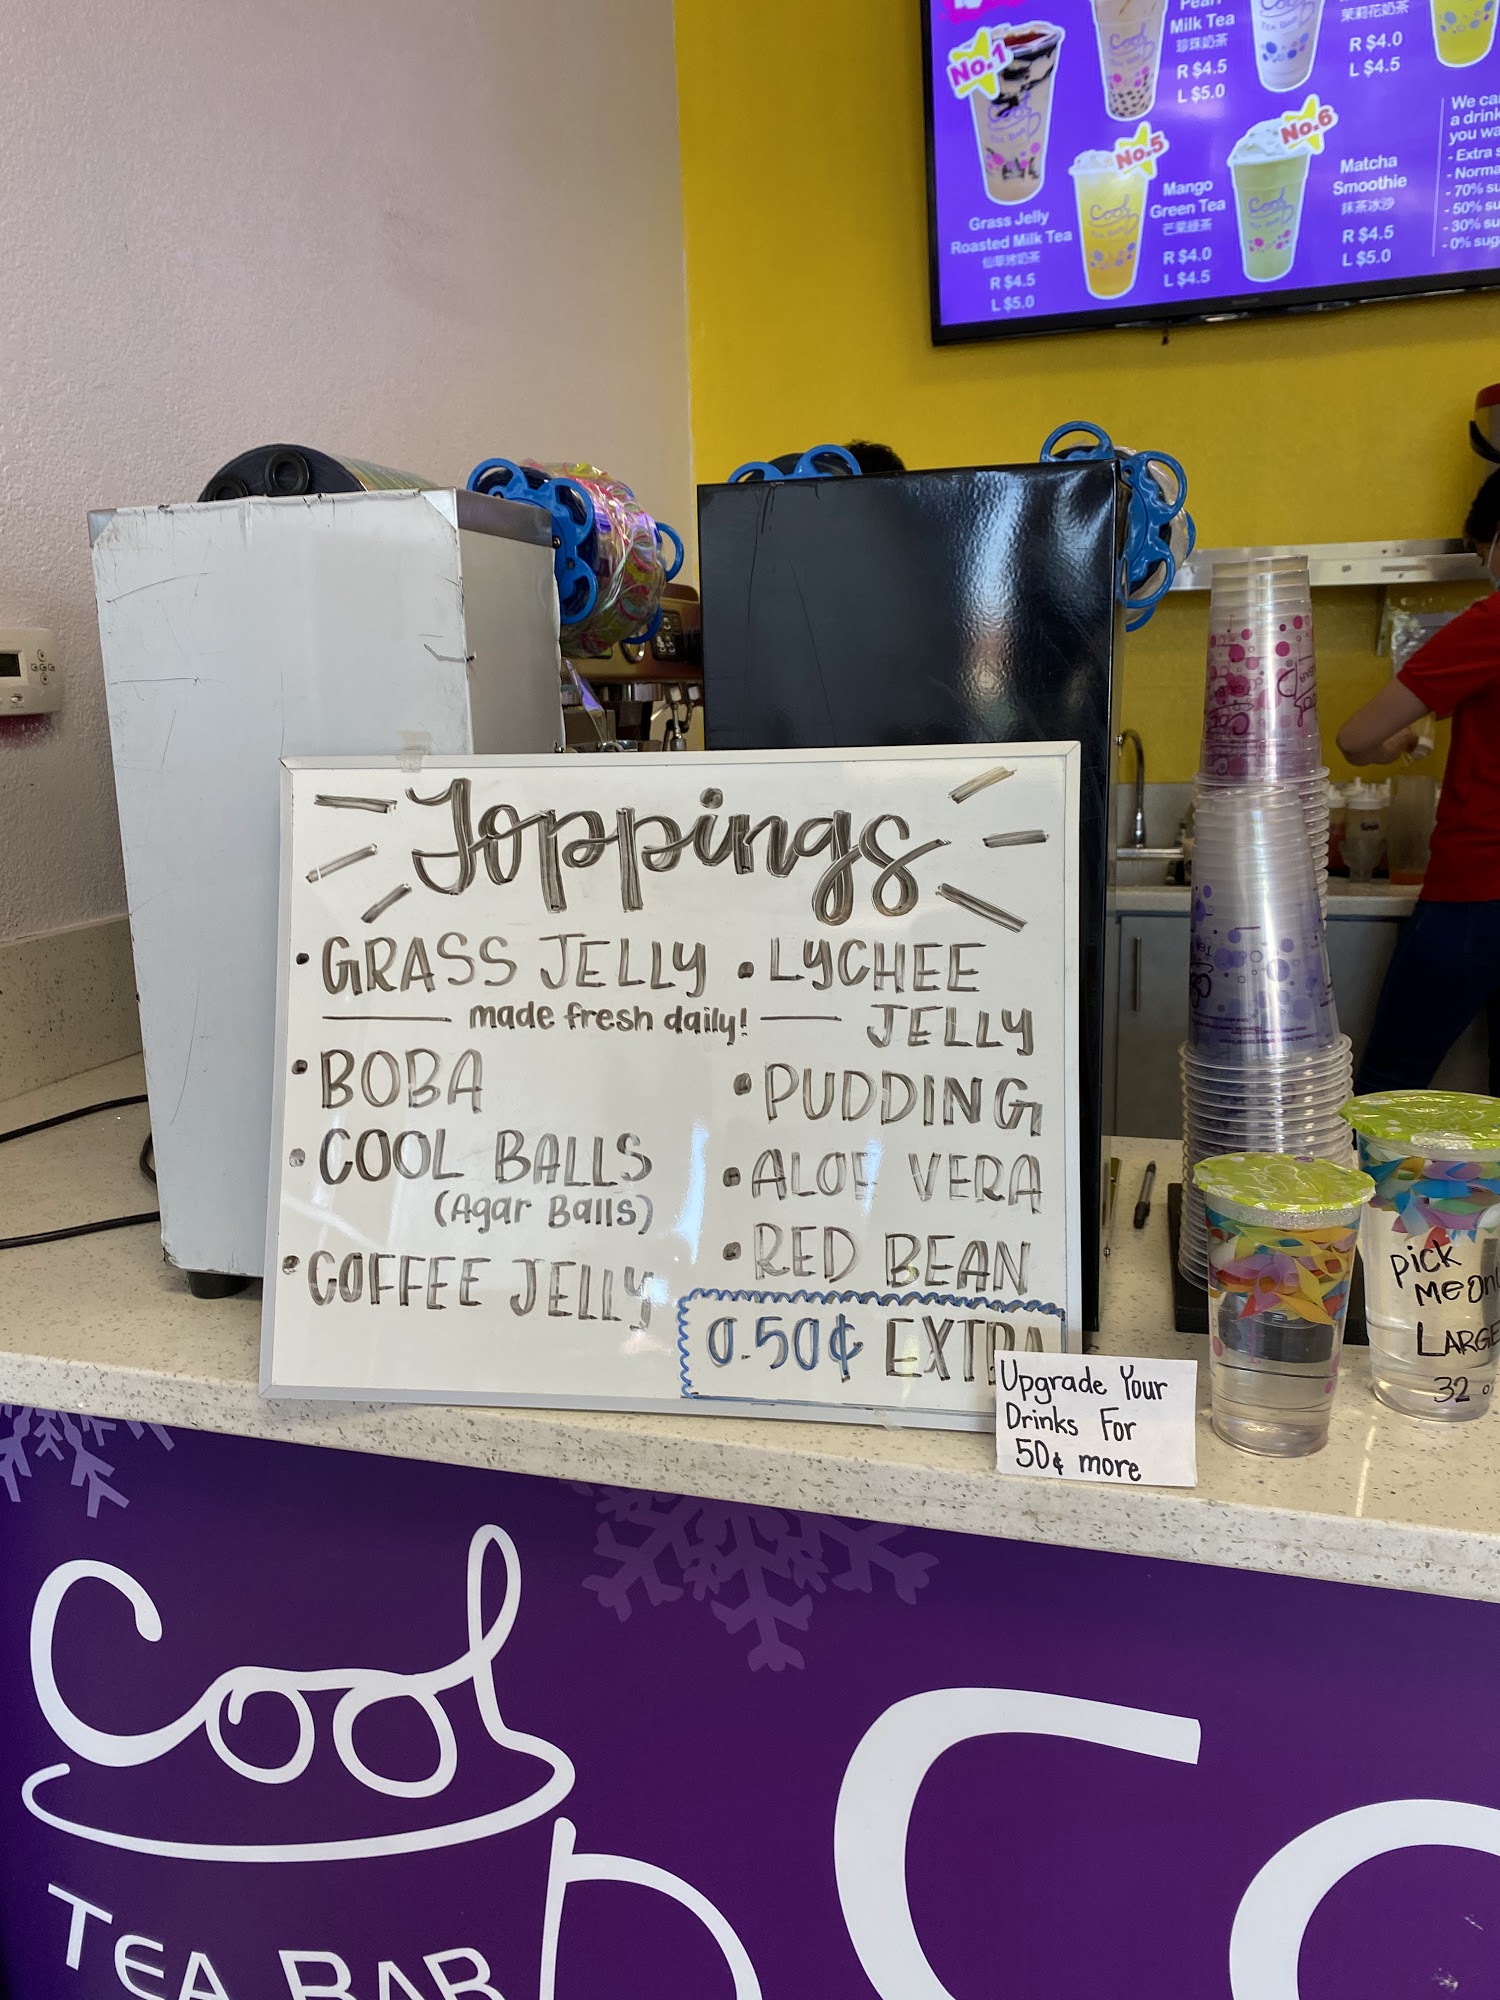 No.1
Grass Jelly
Roasted Milk Tea
仙草烤奶茶
R $4.5
L $5.0
Pearl
Milk Tea
珍珠奶茶
R $4.5
L $5.0
No.5
Mango
Green Tea
芒果綠茶
R $4.0
L $4.5
茉莉花奶茶
R $4.0
L $4.5
No.6
Matcha
Smoothie
抹茶冰沙
R $4.5
L $5.0
We ca
a drink
you wa
- Extra s
- Norma
- 70% su
- 50% su
- 30% su
- 0% sug
Toppings
• GRASS JELLY
made fresh daily!
• BOBA
• COOL BALLS
(Agar Balls)
• COFFEE JELLY
• LYCHEE
JELLY
• PUDDING
• ALOE VERA
• RED BEAN
0.50¢ EXTRA
Upgrade Your
Drinks For
50¢ more
Pick
Me
LARGE
32
Cool
TEA BAR
Co